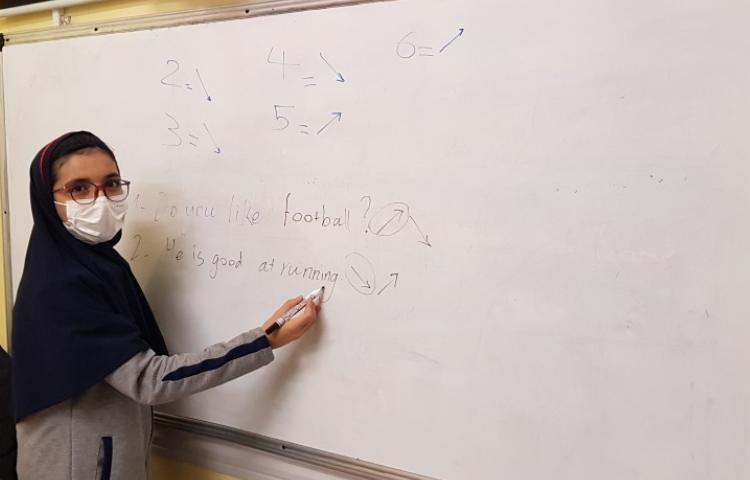 2=↘ 4=↘ 6=↗
3=↘ 5=↗
1- Do you like football? ↗ ↘
2. He is good at running. ↘ ↗